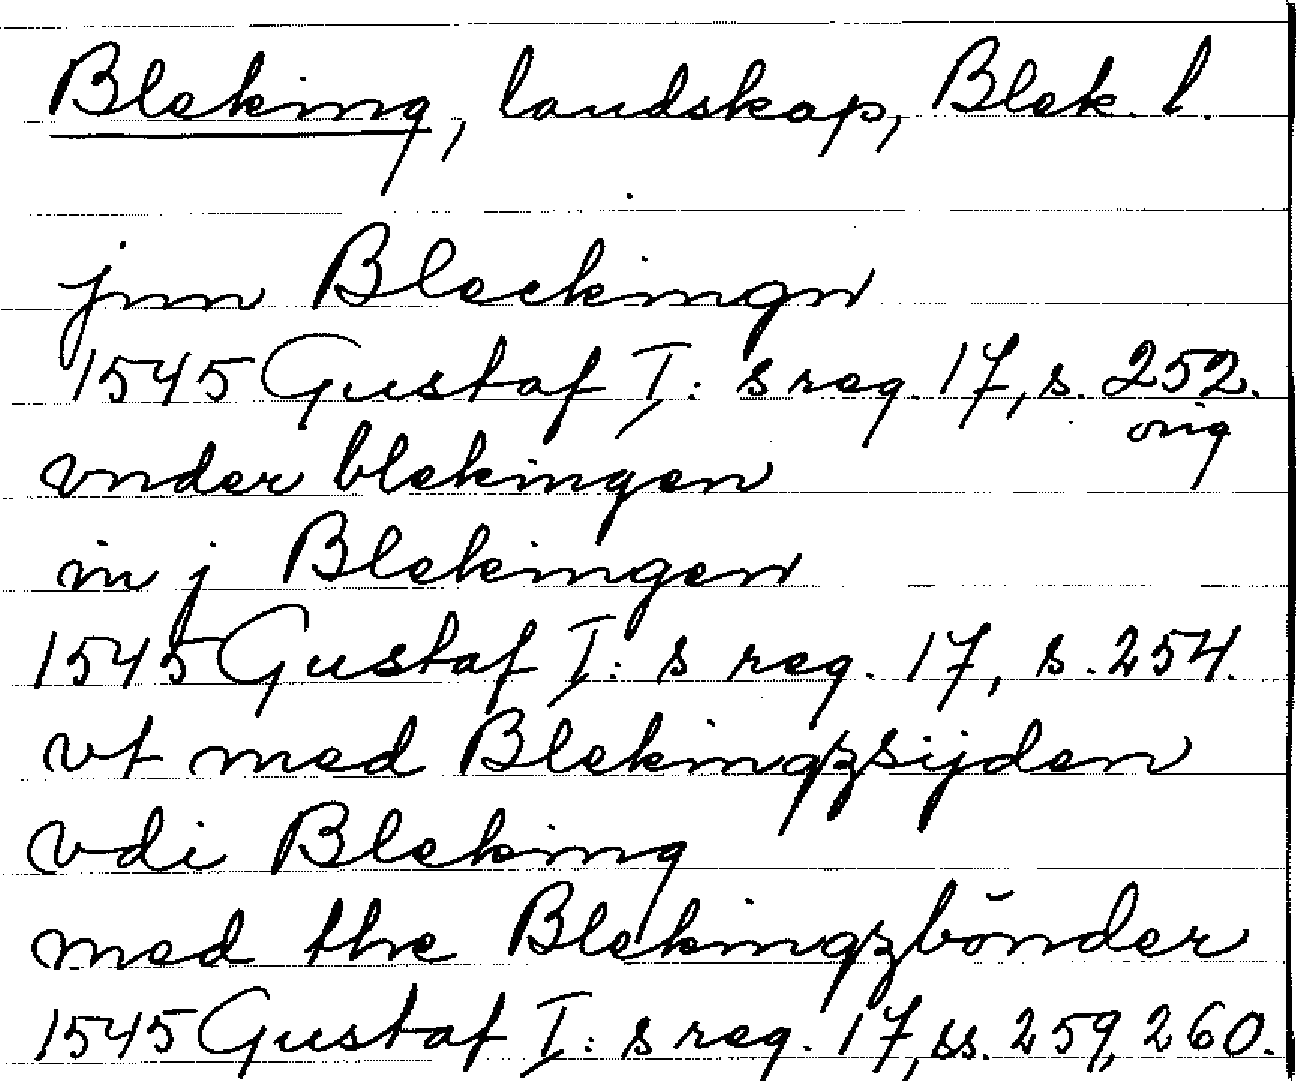 Bleking, landskap, Blek. l.
jnn Bleckingn
1545 Gustaf I: s reg. 17, s. 252.
orig
vnder blekingen
in j Blekingen
1545 Gustaf I: s reg. 17, s. 254.
vt med Blekingzsijden
vdi Bleking
med the Blekingzbönder
1545 Gustaf I: s reg. 17, ss. 259, 260.